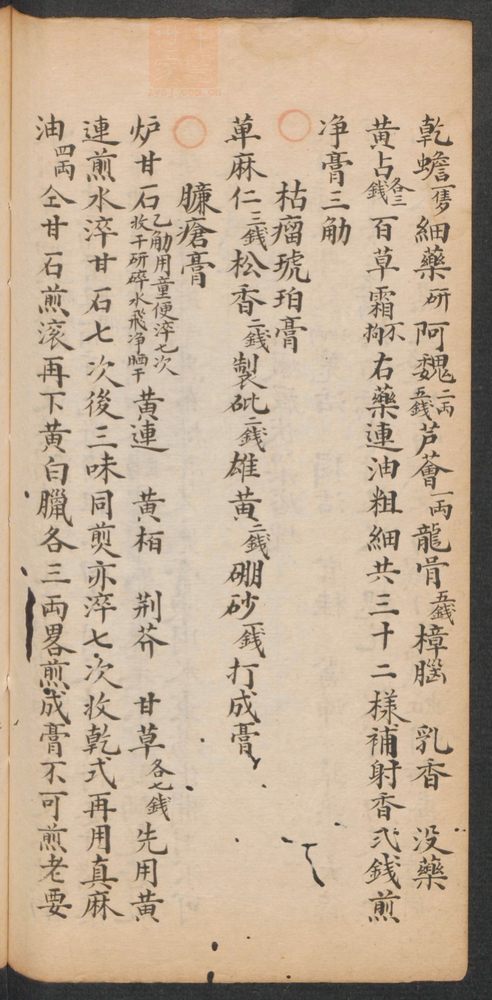 乾蟾一隻細藥研阿魏二両五錢芦薈一両龍骨五錢樟腦 乳香 没藥
黄占各三錢百草霜不拘右藥連油粗細共三十二樣補射香弍錢煎
净膏三觔
枯瘤琥珀膏
萆麻仁三錢松香二錢製砒二錢雄黄二錢硼砂一錢打成膏
臁瘡膏
炉甘石乙觔用童便淬七次收干研碎水飛净晒干黄連 黄栢 荆芥 甘草各七錢先用黄
連煎水淬甘石七次後三味同煎亦淬七次收乾式再用真麻
油四両仝甘石煎滚再下黄白臘各三両畧煎成膏不可煎老要